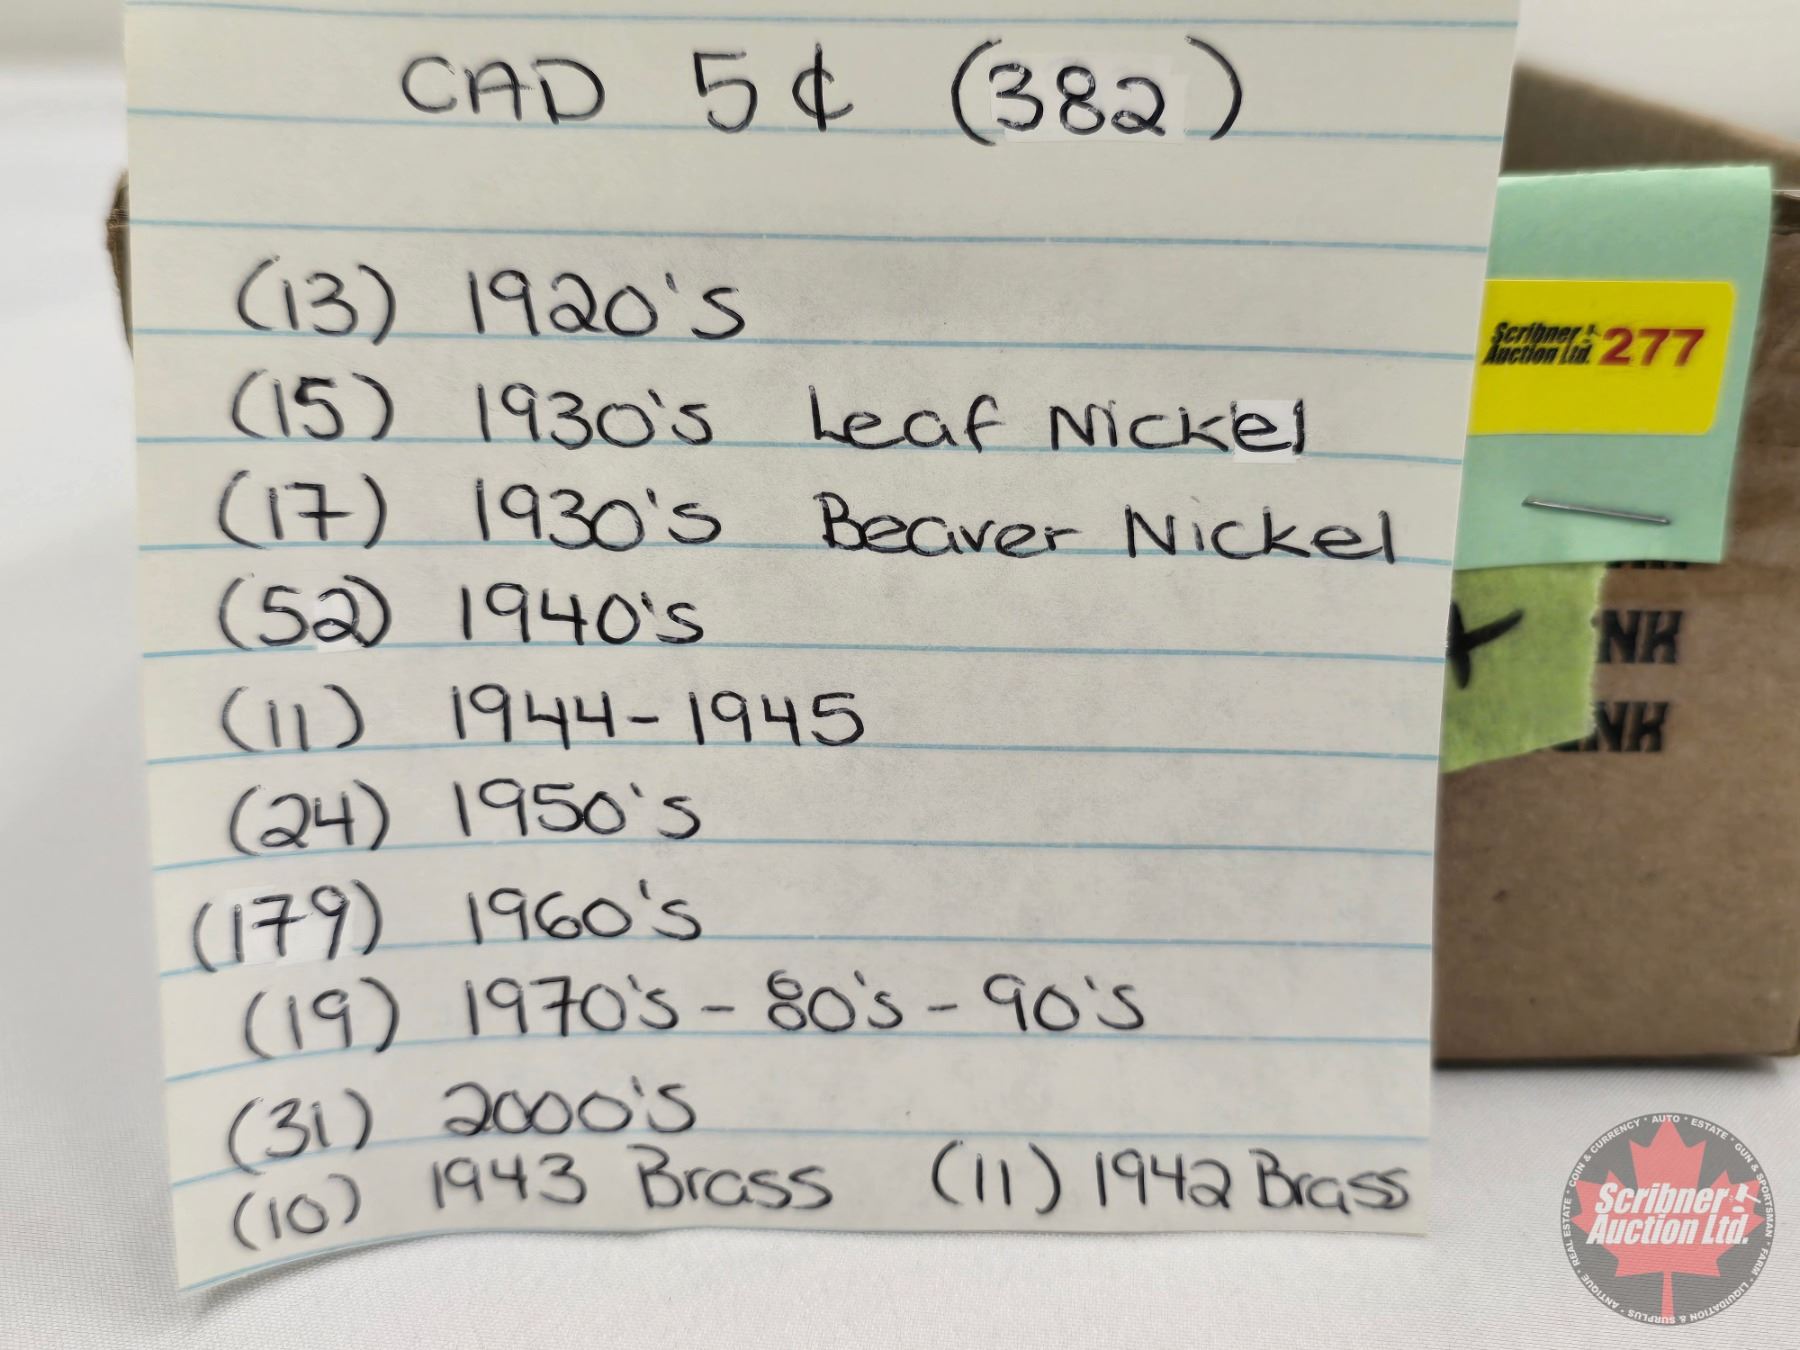 CAD 5¢ (382)
(13) 1920's
(15) 1930's Leaf Nickel
(17) 1930's Beaver Nickel
(52) 1940's
(11) 1944-1945
(24) 1950's
(179) 1960's
(19) 1970's - 80's - 90's
(31) 2000's
(10) 1943 Brass (11) 1942 Brass
Scribner Auction Ltd. 277
NK
NK
COIN & CURRENCY · AUTO · ESTATE · GUN & SPORTSMAN · FARM · LIQUIDATION & SURPLUS · ANTIQUE · REAL ESTATE ·
Scribner
Auction Ltd.